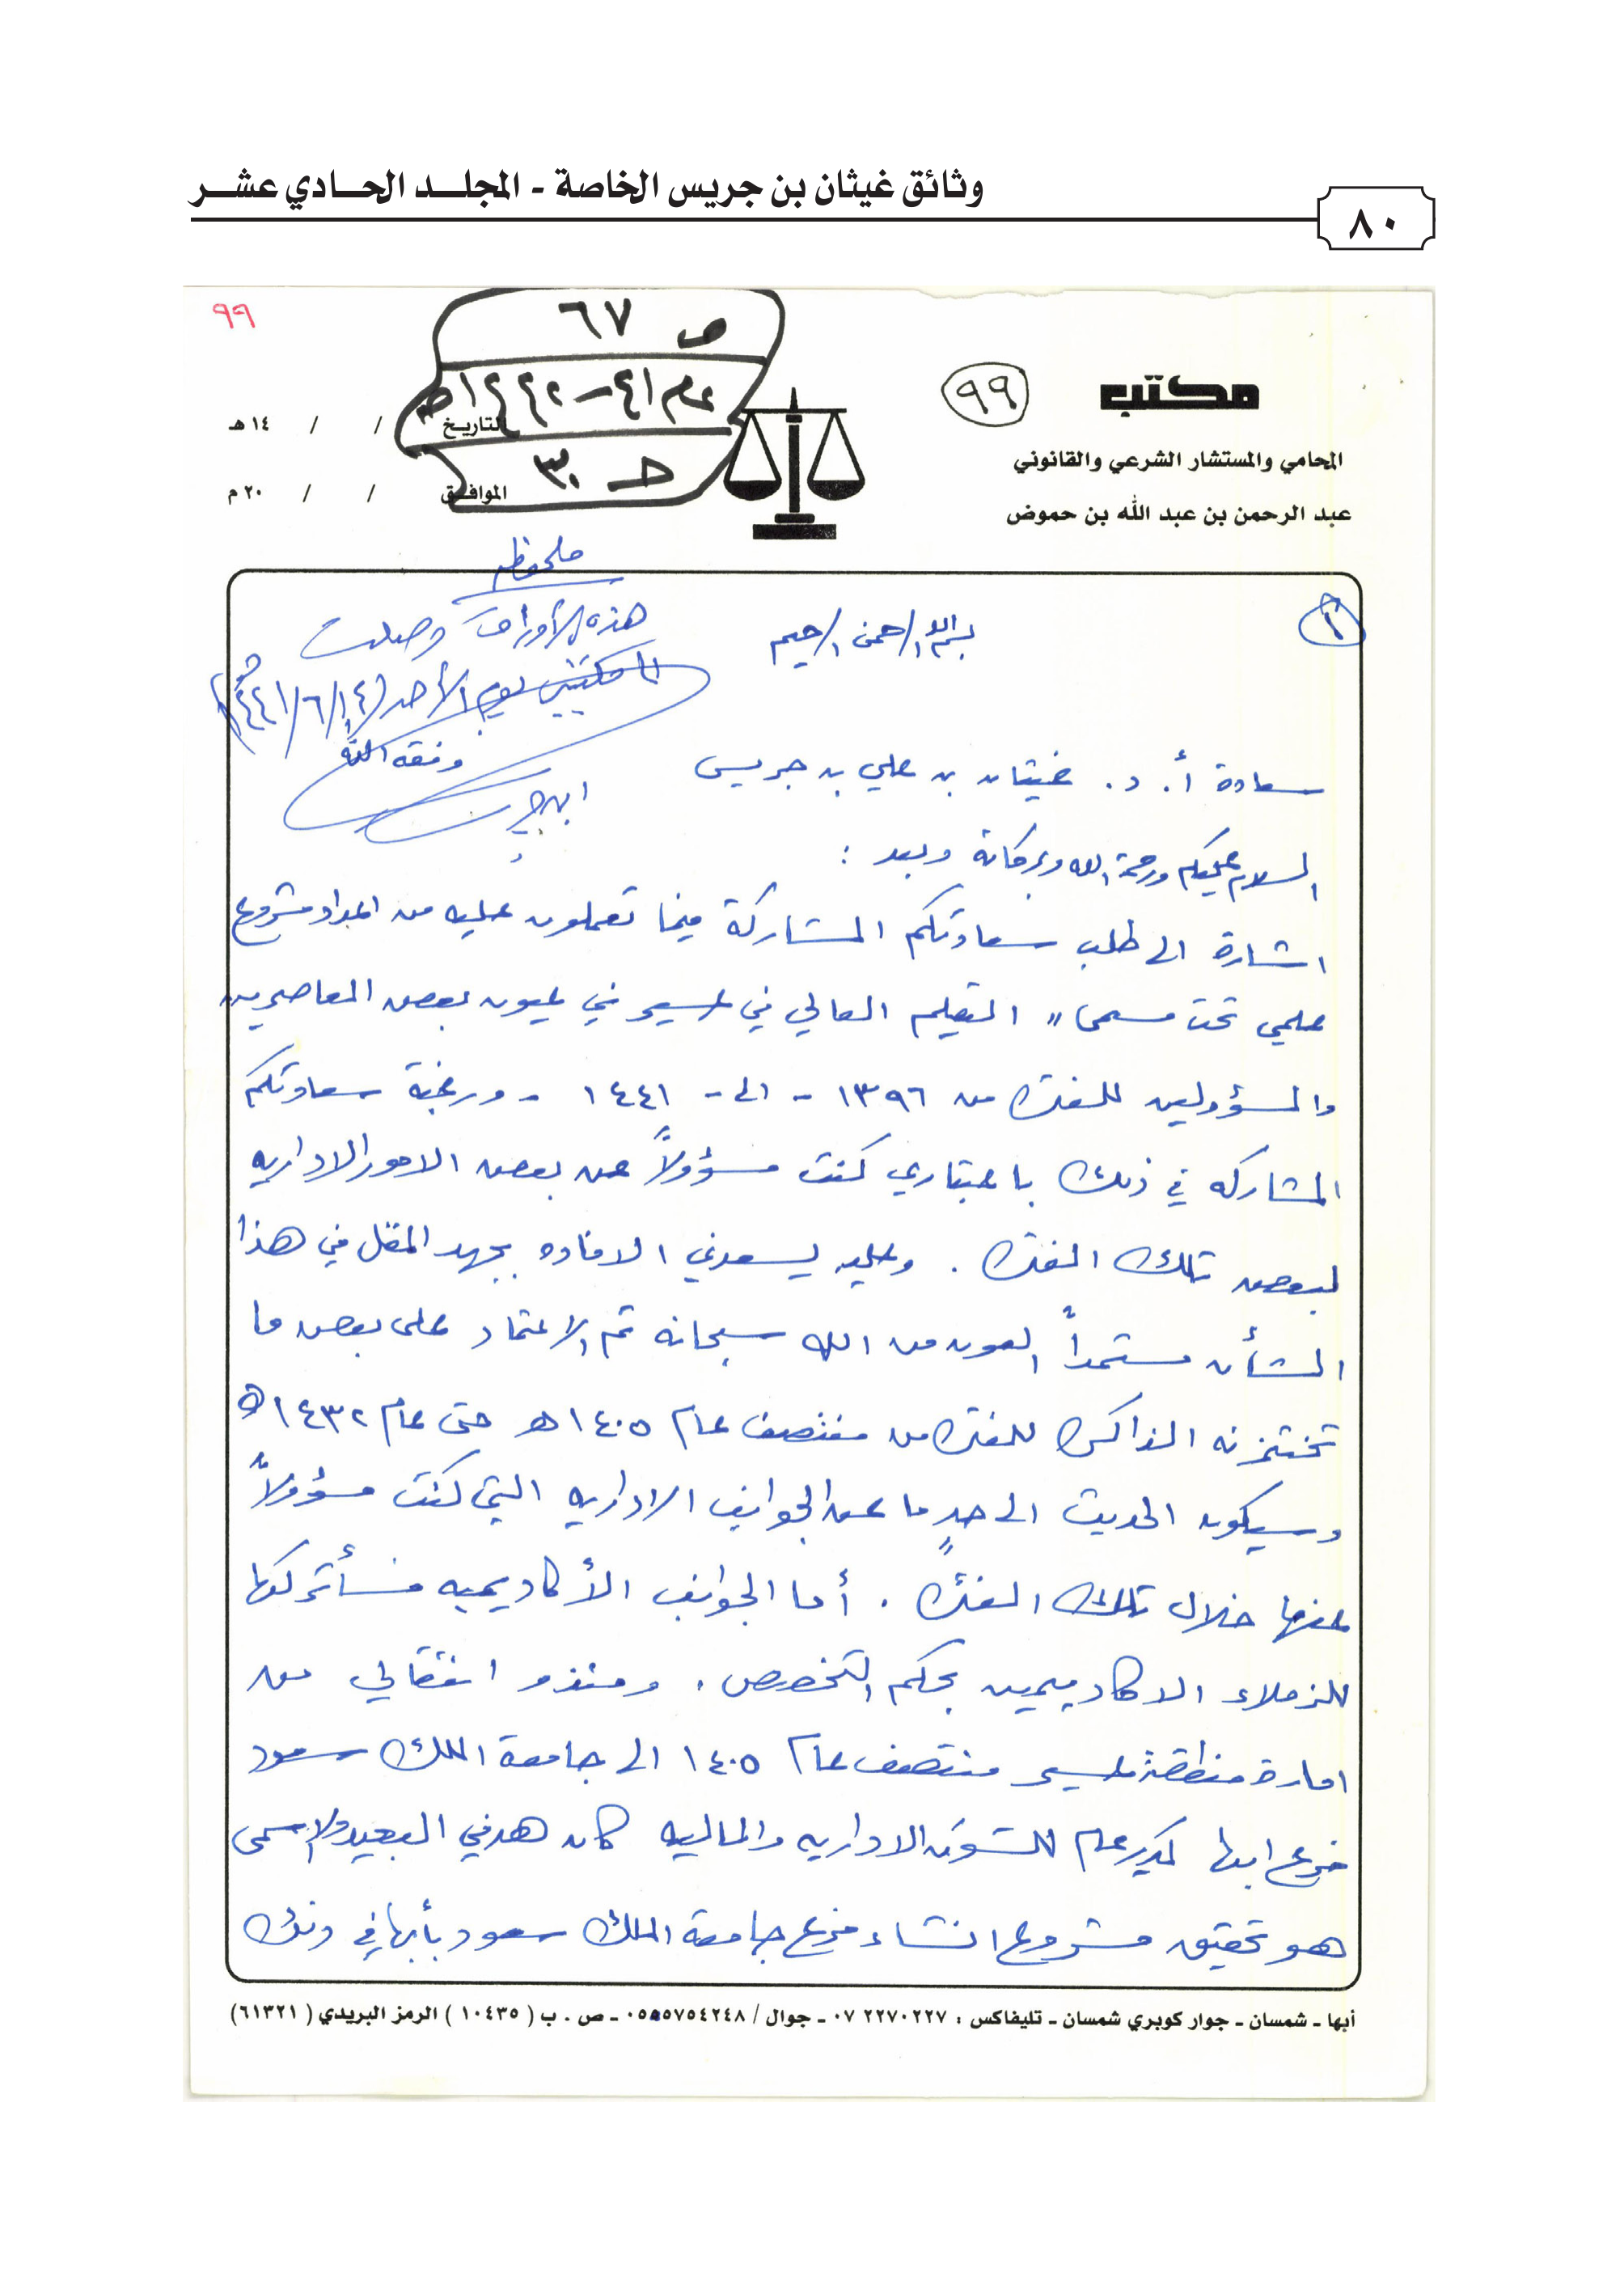 وثائق غيثان بن جريس الخاصة - المجلد الحادي عشر
٨٠
٩٩
ص ٦٧
عام ٤١-١٤٤٢هـ
ح ٣٠
٩٩
مكتب
المحامي والمستشار الشرعي والقانوني
عبد الرحمن بن عبد الله بن حموض
التاريخ / / ١٤هـ
الموافق / / ٢٠م
ملحوظه
هذه الأوراق وصلت
لمكتبي يوم الأحد (١٤٤١/٦/١٤هـ)
وفقه الله
ابن جريس
١
بسم الله الرحمن الرحيم
سعادة أ. د. غيثان بن علي بن جريس
السلام عليكم ورحمة الله وبركاته وبعد :
اشارة الى طلب سعادتكم المشاركة فيما تعملون عليه من اعداد مشروع
علمي تحت مسمى " التعليم العالي في عسير في عيون بعض المعاصرين
والمسؤولين للفتره من ١٣٩٦ - الى - ١٤٤١ - ورغبة سعادتكم
المشاركه في ذلك باعتباري كنت مسؤولاً عن بعض الامور الاداريه
لبعض تلك الفتره . وعليه يسعدني الافاده بجهد المقل في هذا
الشأن مستمداً العون من الله سبحانه ثم الاعتماد على بعض ما
تختزنه الذاكره للفتره من منتصف عام ١٤٠٥هـ حتى عام ١٤٣٢هـ
وسيكون الحديث الى حدٍ ما عن الجوانب الاداريه التي كنت مسؤولاً
عنها خلال تلك الفتره . أما الجوانب الأكاديميه فسأتركها
للزملاء الاكاديميين بحكم التخصص . ومنذو انتقالي من
امارة منطقة عسير منتصف عام ١٤٠٥ الى جامعة الملك سعود
فرع ابها كمدير عام للشؤن الاداريه والماليه كان هدفي البعيد والاسمى
هو تحقيق مشروع انشاء فرع جامعة الملك سعود بأبها في وذلك
أبها - شمسان - جوار كوبري شمسان - تليفاكس : ٢٢٧٠٢٢٧ ٠٧ - جوال / ٠٥٥٥٧٥٤٢٤٨ - ص . ب ( ١٠٤٣٥ ) الرمز البريدي ( ٦١٣٢١ )